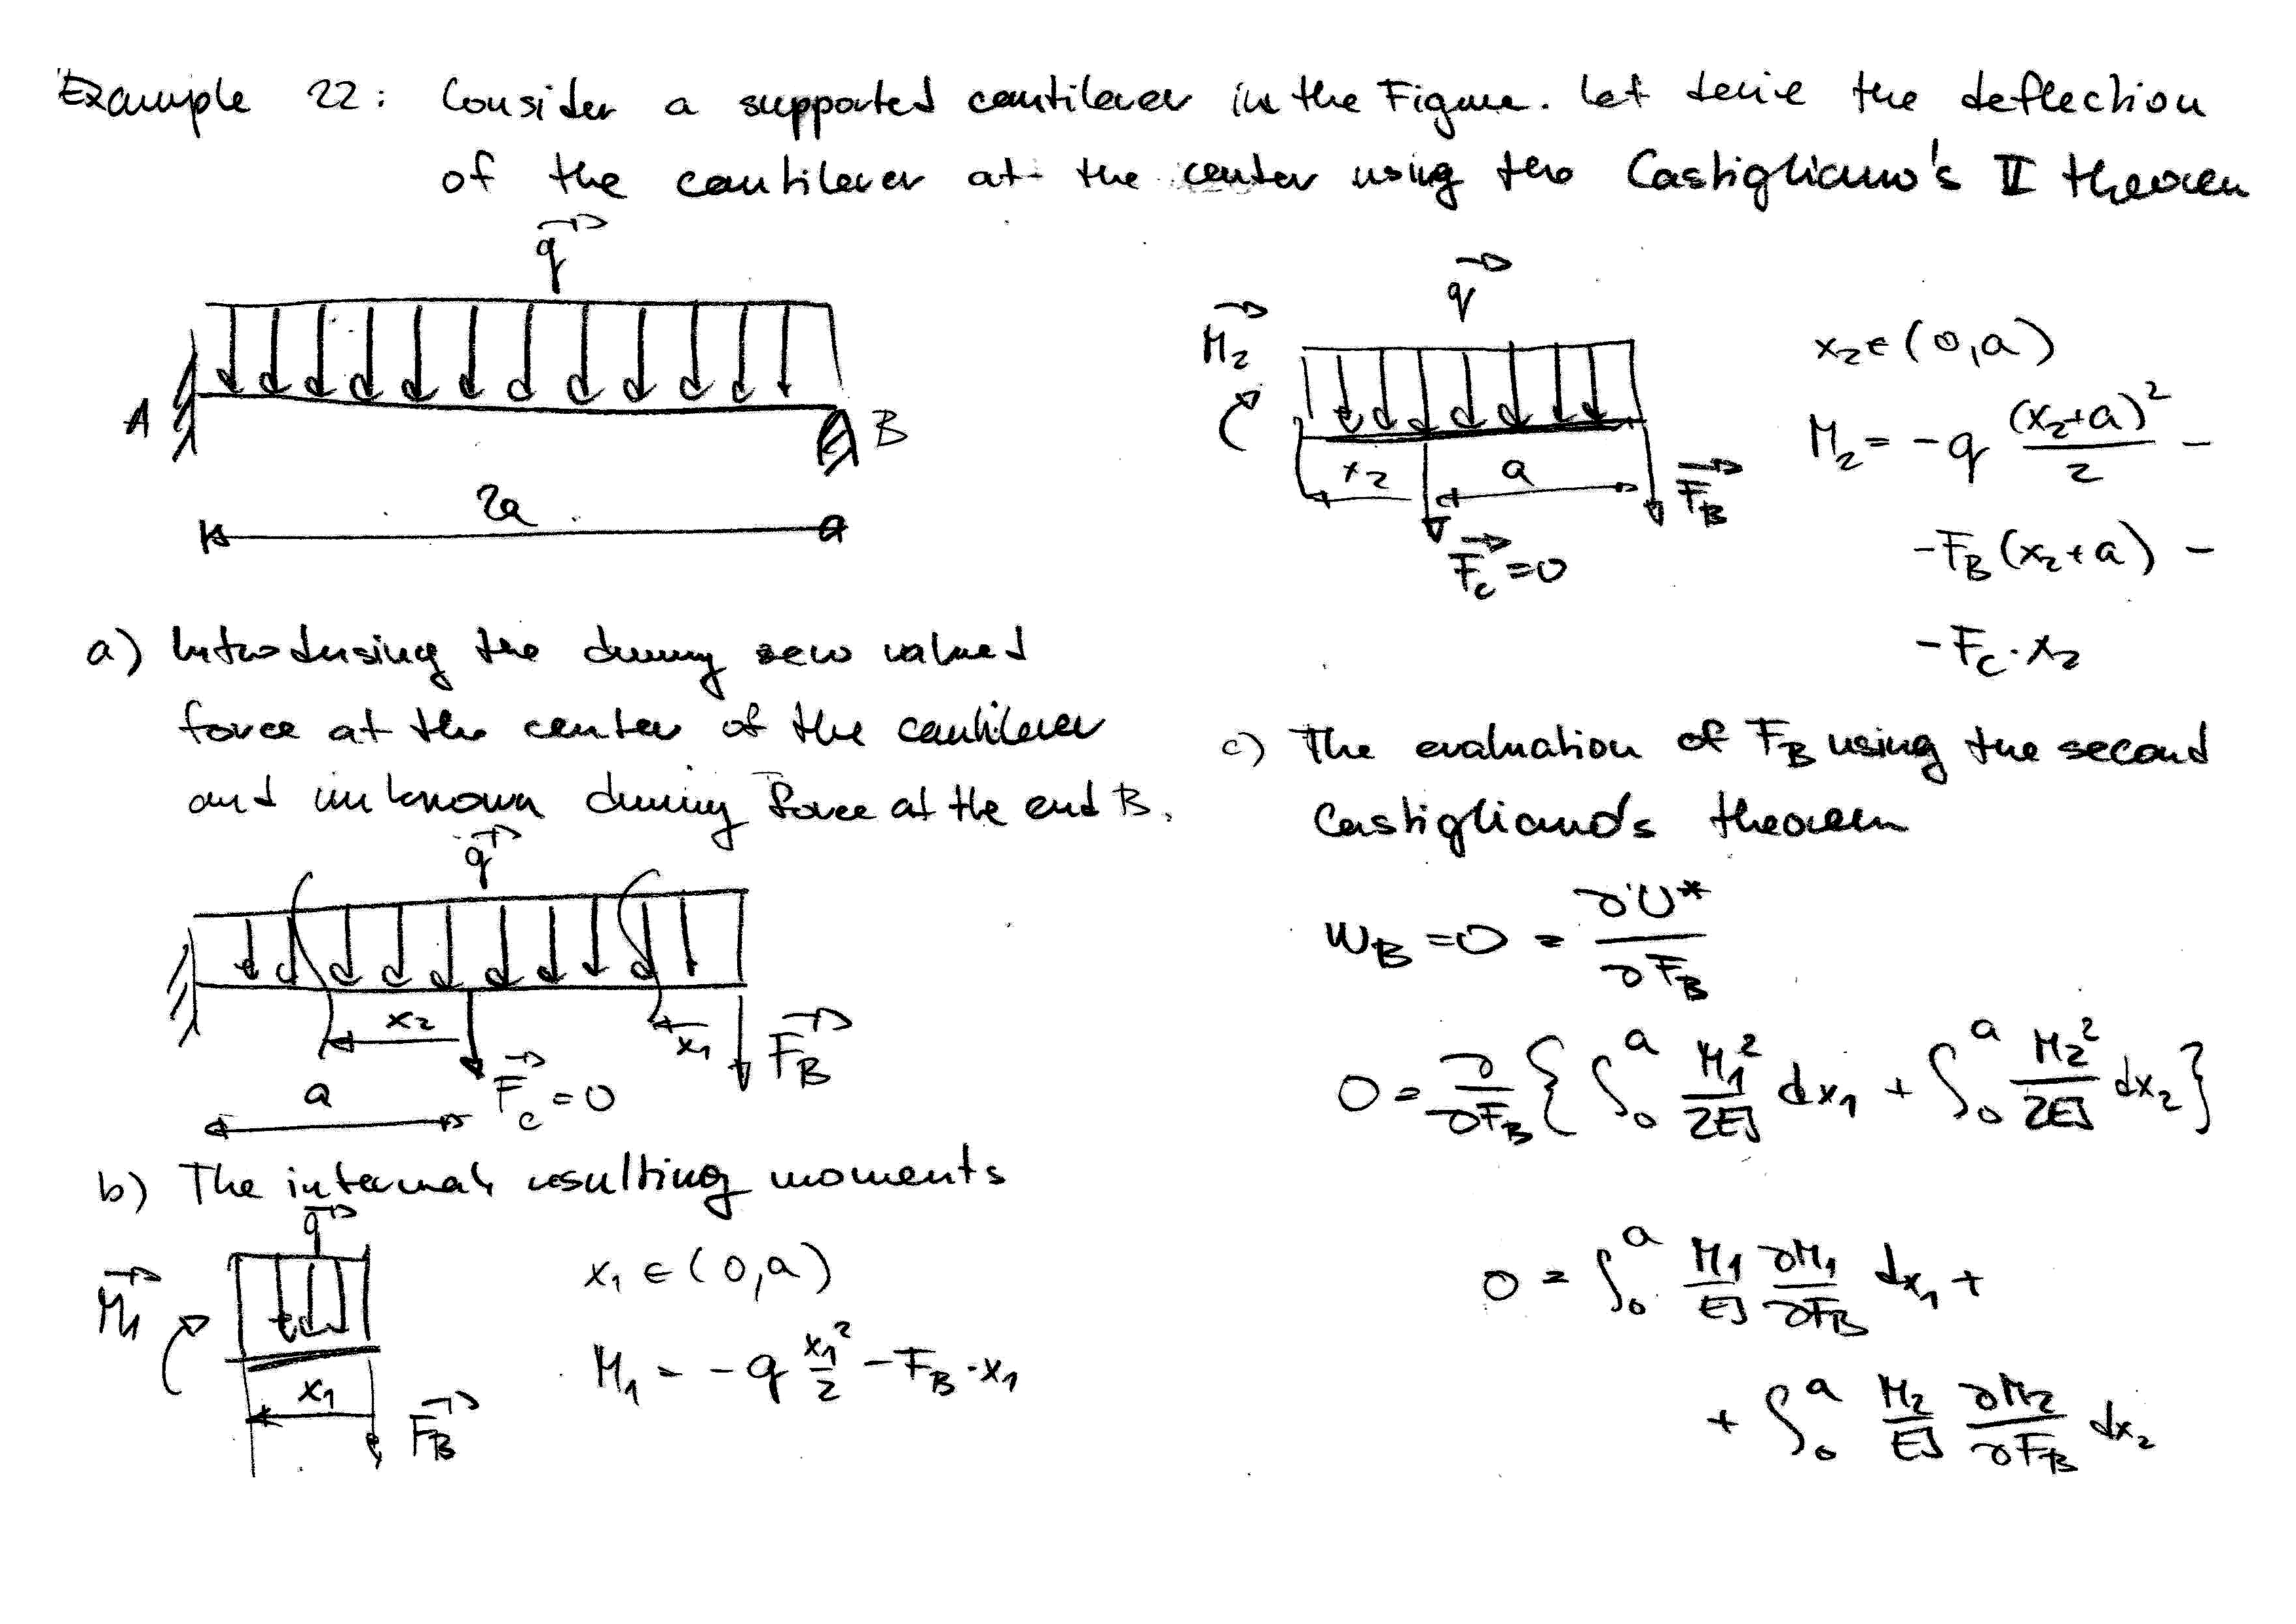 Example 22: Consider a supported cantilever in the Figure. Let derive the deflection
of the cantilever at the center using the Castigliano's II theorem
q
A
B
2a
a) Introdusing the dummy zero valued
force at the center of the cantilever
and unknown dummy force at the end B.
q
x₂
x₁
a
F_c = 0
F_B
b) The internal resulting moments
q
M₁
x₁
F_B
x₁ ∈ (0,a)
M₁ = -q x₁²/2 - F_B·x₁
q
M₂
x₂
a
F_c = 0
F_B
x₂ ∈ (0,a)
M₂ = -q (x₂+a)²/2 -
-F_B (x₂+a) -
-F_c·x₂
c) The evaluation of F_B using the second
Castigliano's theorem
w_B = 0 = ∂U*/∂F_B
0 = ∂/∂F_B { ∫₀ᵃ M₁²/2EJ dx₁ + ∫₀ᵃ M₂²/2EJ dx₂ }
0 = ∫₀ᵃ M₁/EJ ∂M₁/∂F_B dx₁ +
+ ∫₀ᵃ M₂/EJ ∂M₂/∂F_B dx₂